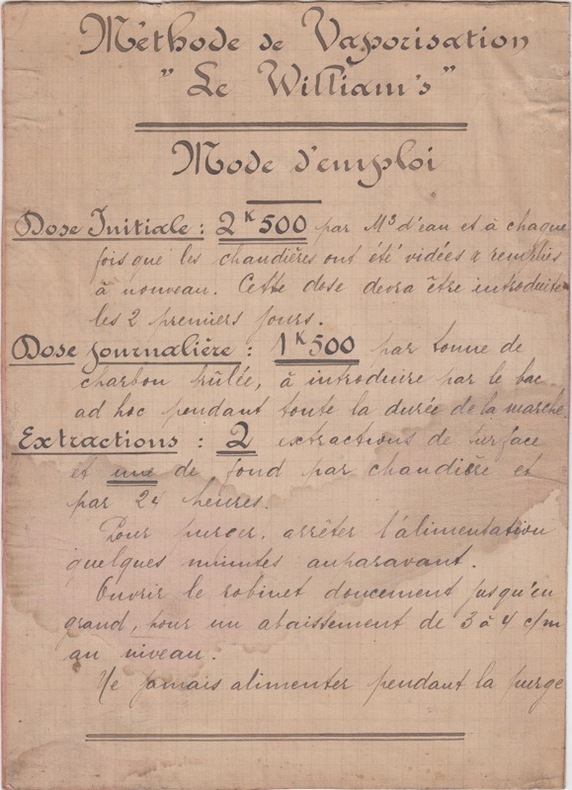 Méthode de Vaporisation
"Le William's"
Mode d'emploi
Dose Initiale : 2K500 par M3 d'eau et à chaque
fois que les chaudières ont été vidées & remplies
à nouveau. Cette dose devra être introduite
les 2 premiers jours.
Dose journalière : 1K500 par tonne de
charbon brûlée, à introduire par le bac
ad hoc pendant toute la durée de la marche.
Extractions : 2 extractions de surface
et une de fond par chaudière et
par 24 heures.
Pour purger, arrêter l'alimentation
quelques minutes auparavant.
Ouvrir le robinet doucement jusqu'en
grand, pour un abaissement de 3 à 4 c/m
au niveau.
Ne jamais alimenter pendant la purge